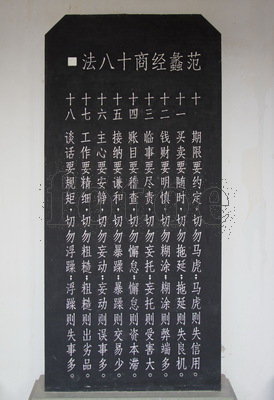 范蠡经商十八法
十 期限要约定,切勿马虎;马虎则失信用。
十一 买卖要随时,切勿拖延;拖延则失良机。
十二 钱财要明慎,切勿糊涂;糊涂则弊端多。
十三 临事要尽责,切勿妄托;妄托则受害大。
十四 账目要稽查,切勿懈怠;懈怠则资本滞。
十五 接纳要谦和,切勿暴躁;暴躁则交易少。
十六 主心要安静,切勿妄动;妄动则误事多。
十七 工作要精细,切勿粗糙;粗糙则出劣品。
十八 谈话要规矩,切勿浮躁;浮躁则失事多。